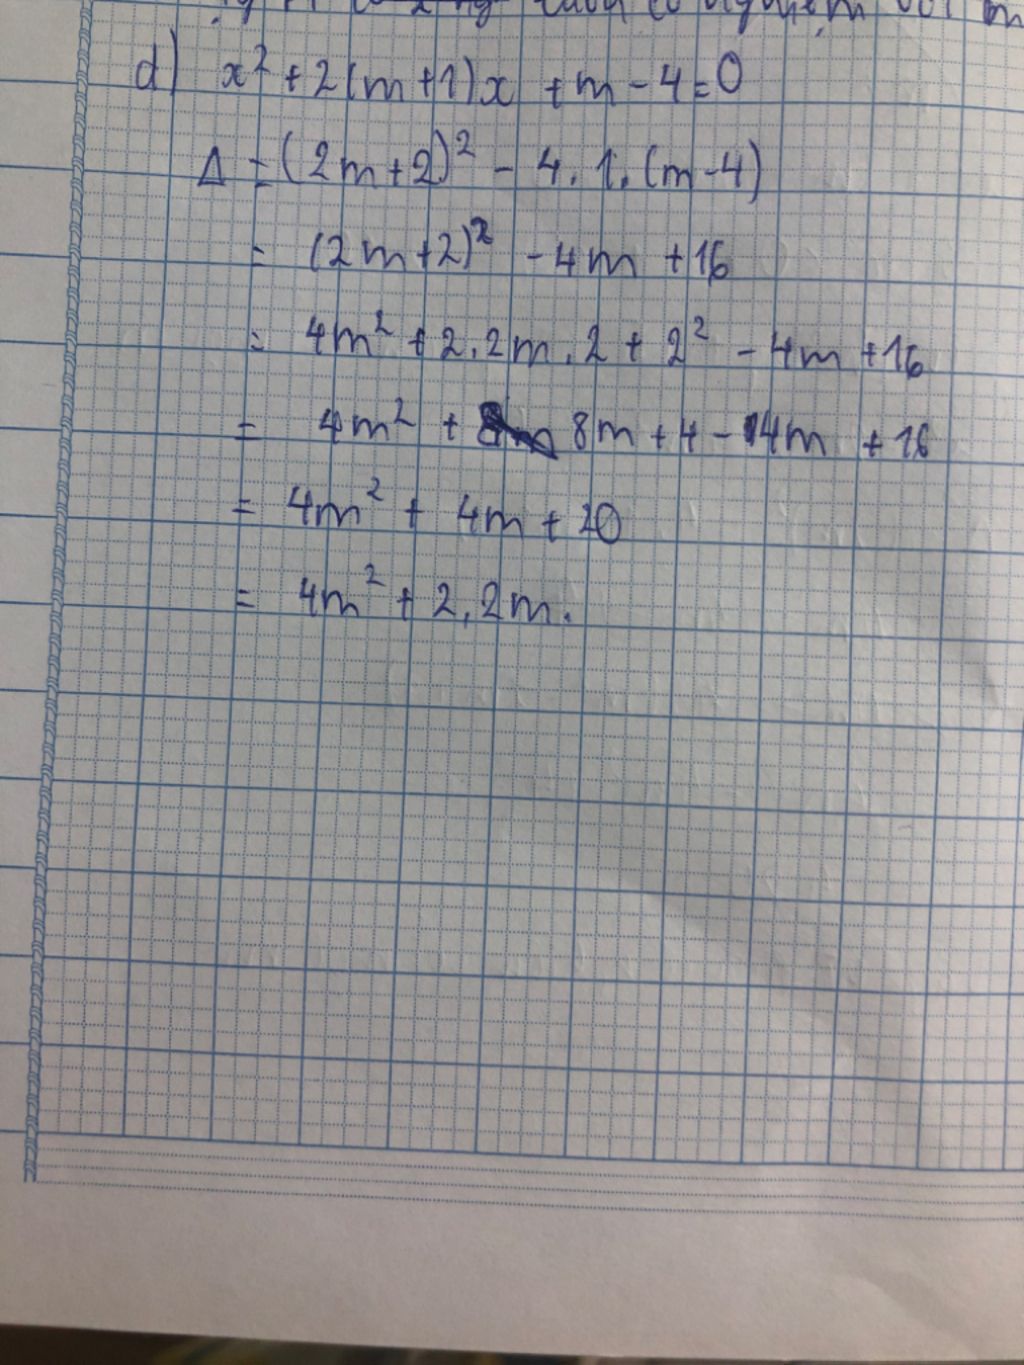 d) x² + 2(m+1)x + m - 4 = 0
Δ = (2m+2)² - 4.1.(m-4)
= (2m+2)² - 4m + 16
= 4m² + 2.2m.2 + 2² - 4m + 16
= 4m² + 8m + 4 - 4m + 16
= 4m² + 4m + 20
= 4m² + 2.2m.